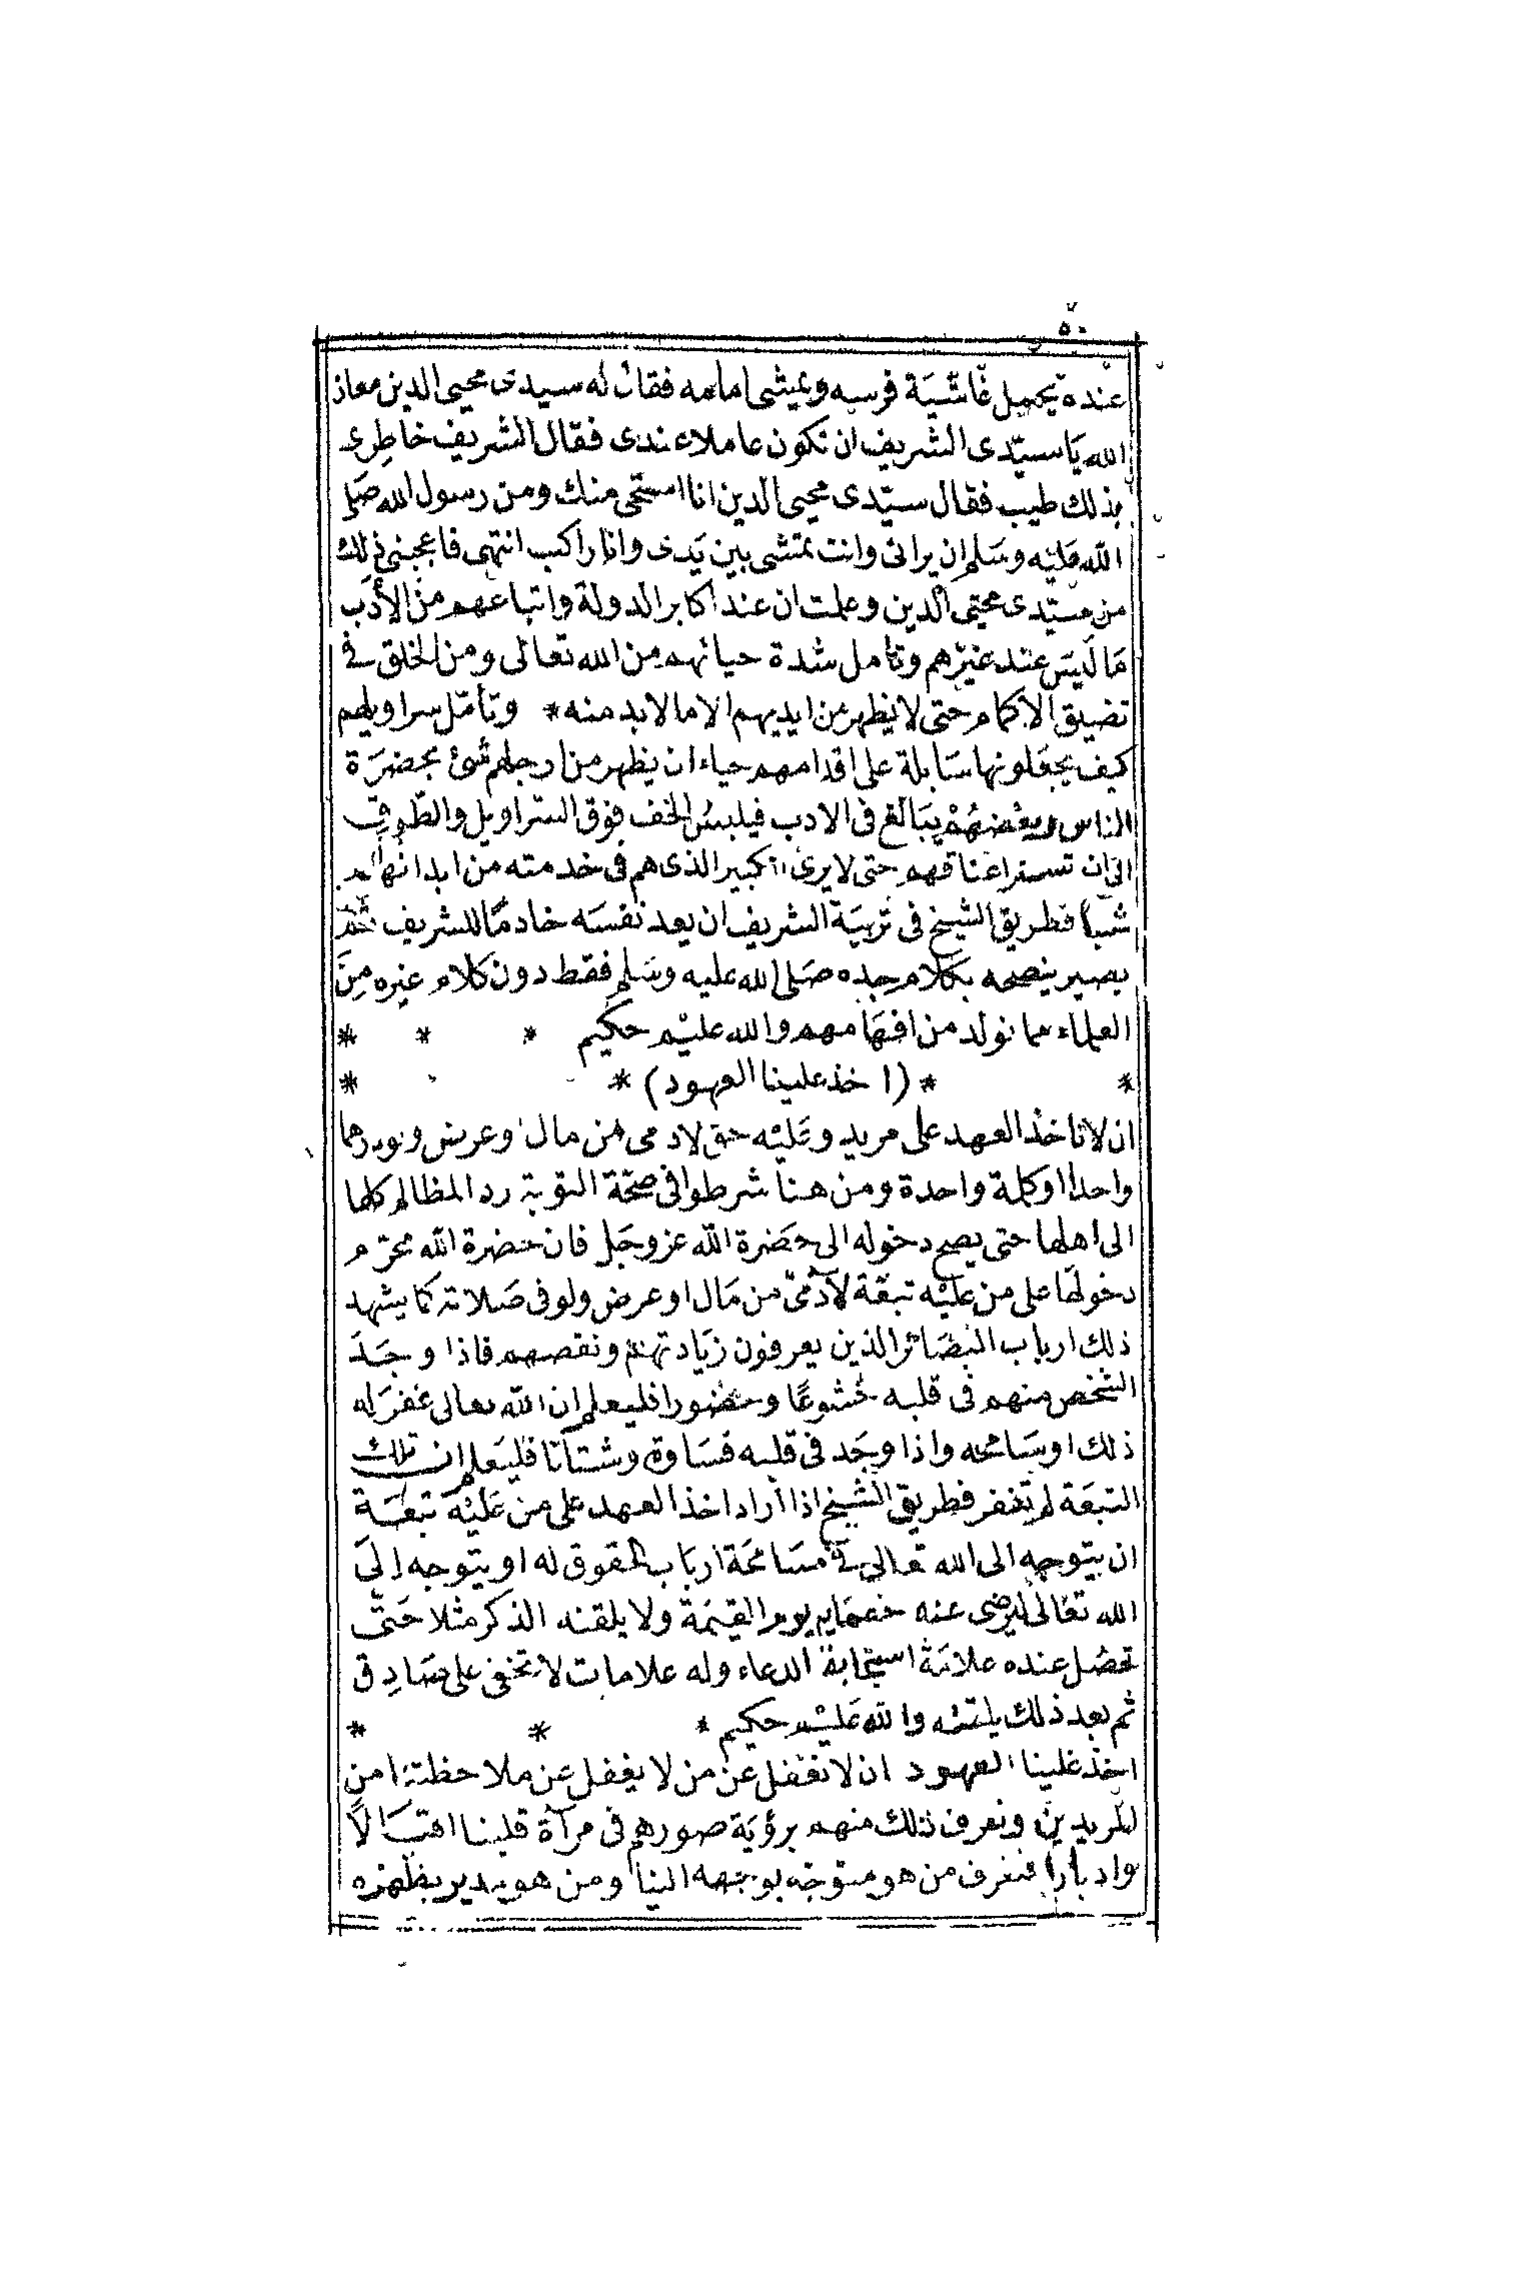 ٥٠
عنده يحمل غاشية فرسه ويمشى امامه فقال له سيدى محيى الدين معاذ
الله يا سيّدى الشريف ان تكون عاملا عندى فقال الشريف خاطرى
بذلك طيب فقال سيّدى محيى الدين انا استحى منك ومن رسول الله صَلى
الله عَليْه وسَلم ان يرانى وانت تمشى بين يَدى وانا راكب انتهى فاعجبنى ذلك
من سيّدى محيى الدين وعلمت ان عند اكابر الدولة واتباعهم من الأدَب
مَا لَيسَ عند غيرهم وتأمل شدة حيائهم من الله تعالى ومن الخلق فى
تضييق الاكمام حتى لا يظهر من ايديهم الا ما لا بد منه * وتأمّل سراويلهم
كيف يجعَلونها سَابلة على اقدامهم حياء ان يظهر من ارجلهم شئ بحضرَة
الناس وبعْضهُمْ يبَالغ فى الادب فيلبسُ الخف فوق السّراويل والطّوق
الى ان تستر اعناقهم حتى لا يرى الكبير الذى هم فى خدمته من ابدانهم
شيأ فطريق الشيخ فى تربيَة الشريف ان يعد نفسَه خادمًا للشريف ثم
يصير ينصحه بكلام جده صَلى الله عليه وسَلم فقط دون كلام غيره مِنَ
العلماء مما تولد من افهَامهم والله عليْم حكيم * * *
* * (اخذ علينا العهود) * *
ان لا ناخذ العهد على مريد وعَليْه حق لادمى من مال وعرض ولو درهما
واحدا او كلمة واحدة ومن هنا شرطوا فى صحّة التوبة رد المظالم كلها
الى اهلها حتى يصح دخوله الى حَضرة الله عز وجَل فان حضرة الله محرّم
دخولهَا على من عليْه تبعَة لآدمىّ من مَال او عرض ولو فى صَلاته كما يشهد
ذلك ارباب البصَائر الذين يعرفون زيَادتهم ونقصهم فاذا وجَدَ
الشخص منهم فى قلبه خشوعًا وحضورا فليعلم ان الله تعالى غفرَ له
ذلك او سَامحه واذا وجَد فى قلبه قسَاوة وشتاتا فليَعلم ان تلك
التبعَة لم تغفر فطريق الشيخ اذا أراد اخذ العهد على من عَليْه تبعَة
ان يتوجه الى الله تعالى فى مسَامحَة اربَاب الحقوق له او يتوجه إلىَ
الله تعَالى ليرضى عنه خصمَايه يوم القيمَة ولا يلقنه الذكر مثلا حَتّى
تحصُل عنده علامَة استجابة الدعاء وله علامات لا تخفى على صَادِق
ثم بعد ذلك يلقنه والله عَليْم حكيم * * *
اخذ علينا العهود ان لا نغفل عن من لا يغفل عن ملاحظتنا من
المريدين ونعرف ذلك منهم برؤيَة صورهم فى مرآة قلبنا اقبَالاً
وادبارا فنعرف من هو متوجّه بوجهه الينا ومن هو يدير بظهره